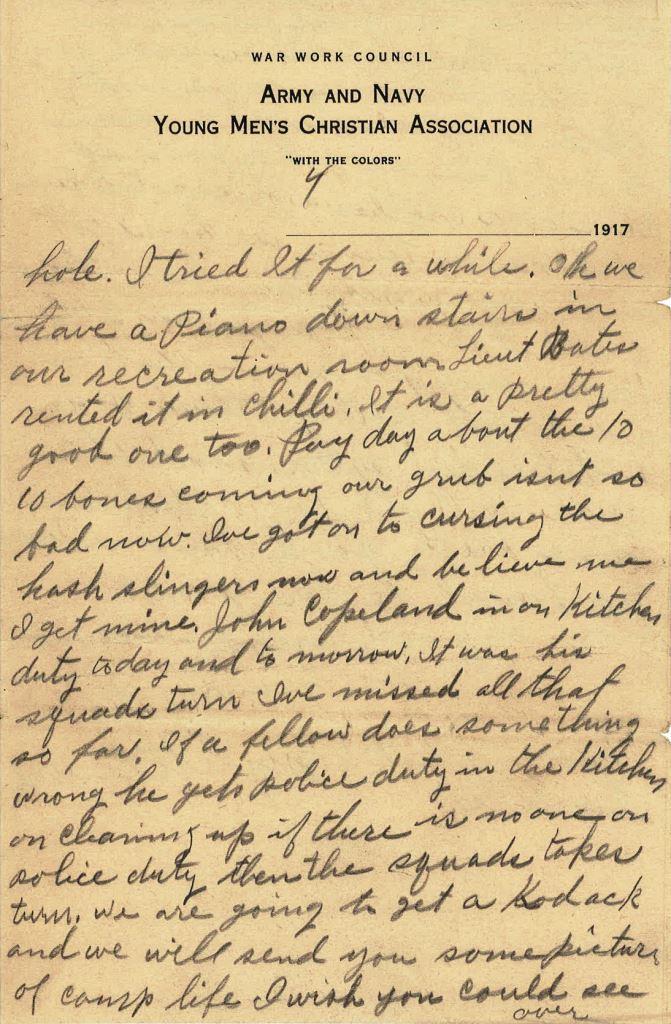 WAR WORK COUNCIL
ARMY AND NAVY
YOUNG MEN'S CHRISTIAN ASSOCIATION
"WITH THE COLORS"
4
1917
hole. I tried It for a while. Oh we
have a Piano down stairs in
our recreation room Lieut Bates
rented it in Chilli. It is a pretty
good one too. Pay day about the 10
10 bones coming our grub isnt so
bad now. Ive got on to cursing the
hash slingers now and believe me
I get mine. John Copeland in on Kitchen
duty today and to morrow. It was his
squads turn Ive missed all that
so far. If a fellow does something
wrong he gets police duty in the Kitchen
on cleaning up if there is no one on
police duty then the squads takes
turn. we are going to get a Kodack
and we will send you some picture
of camp life I wish you could see
over